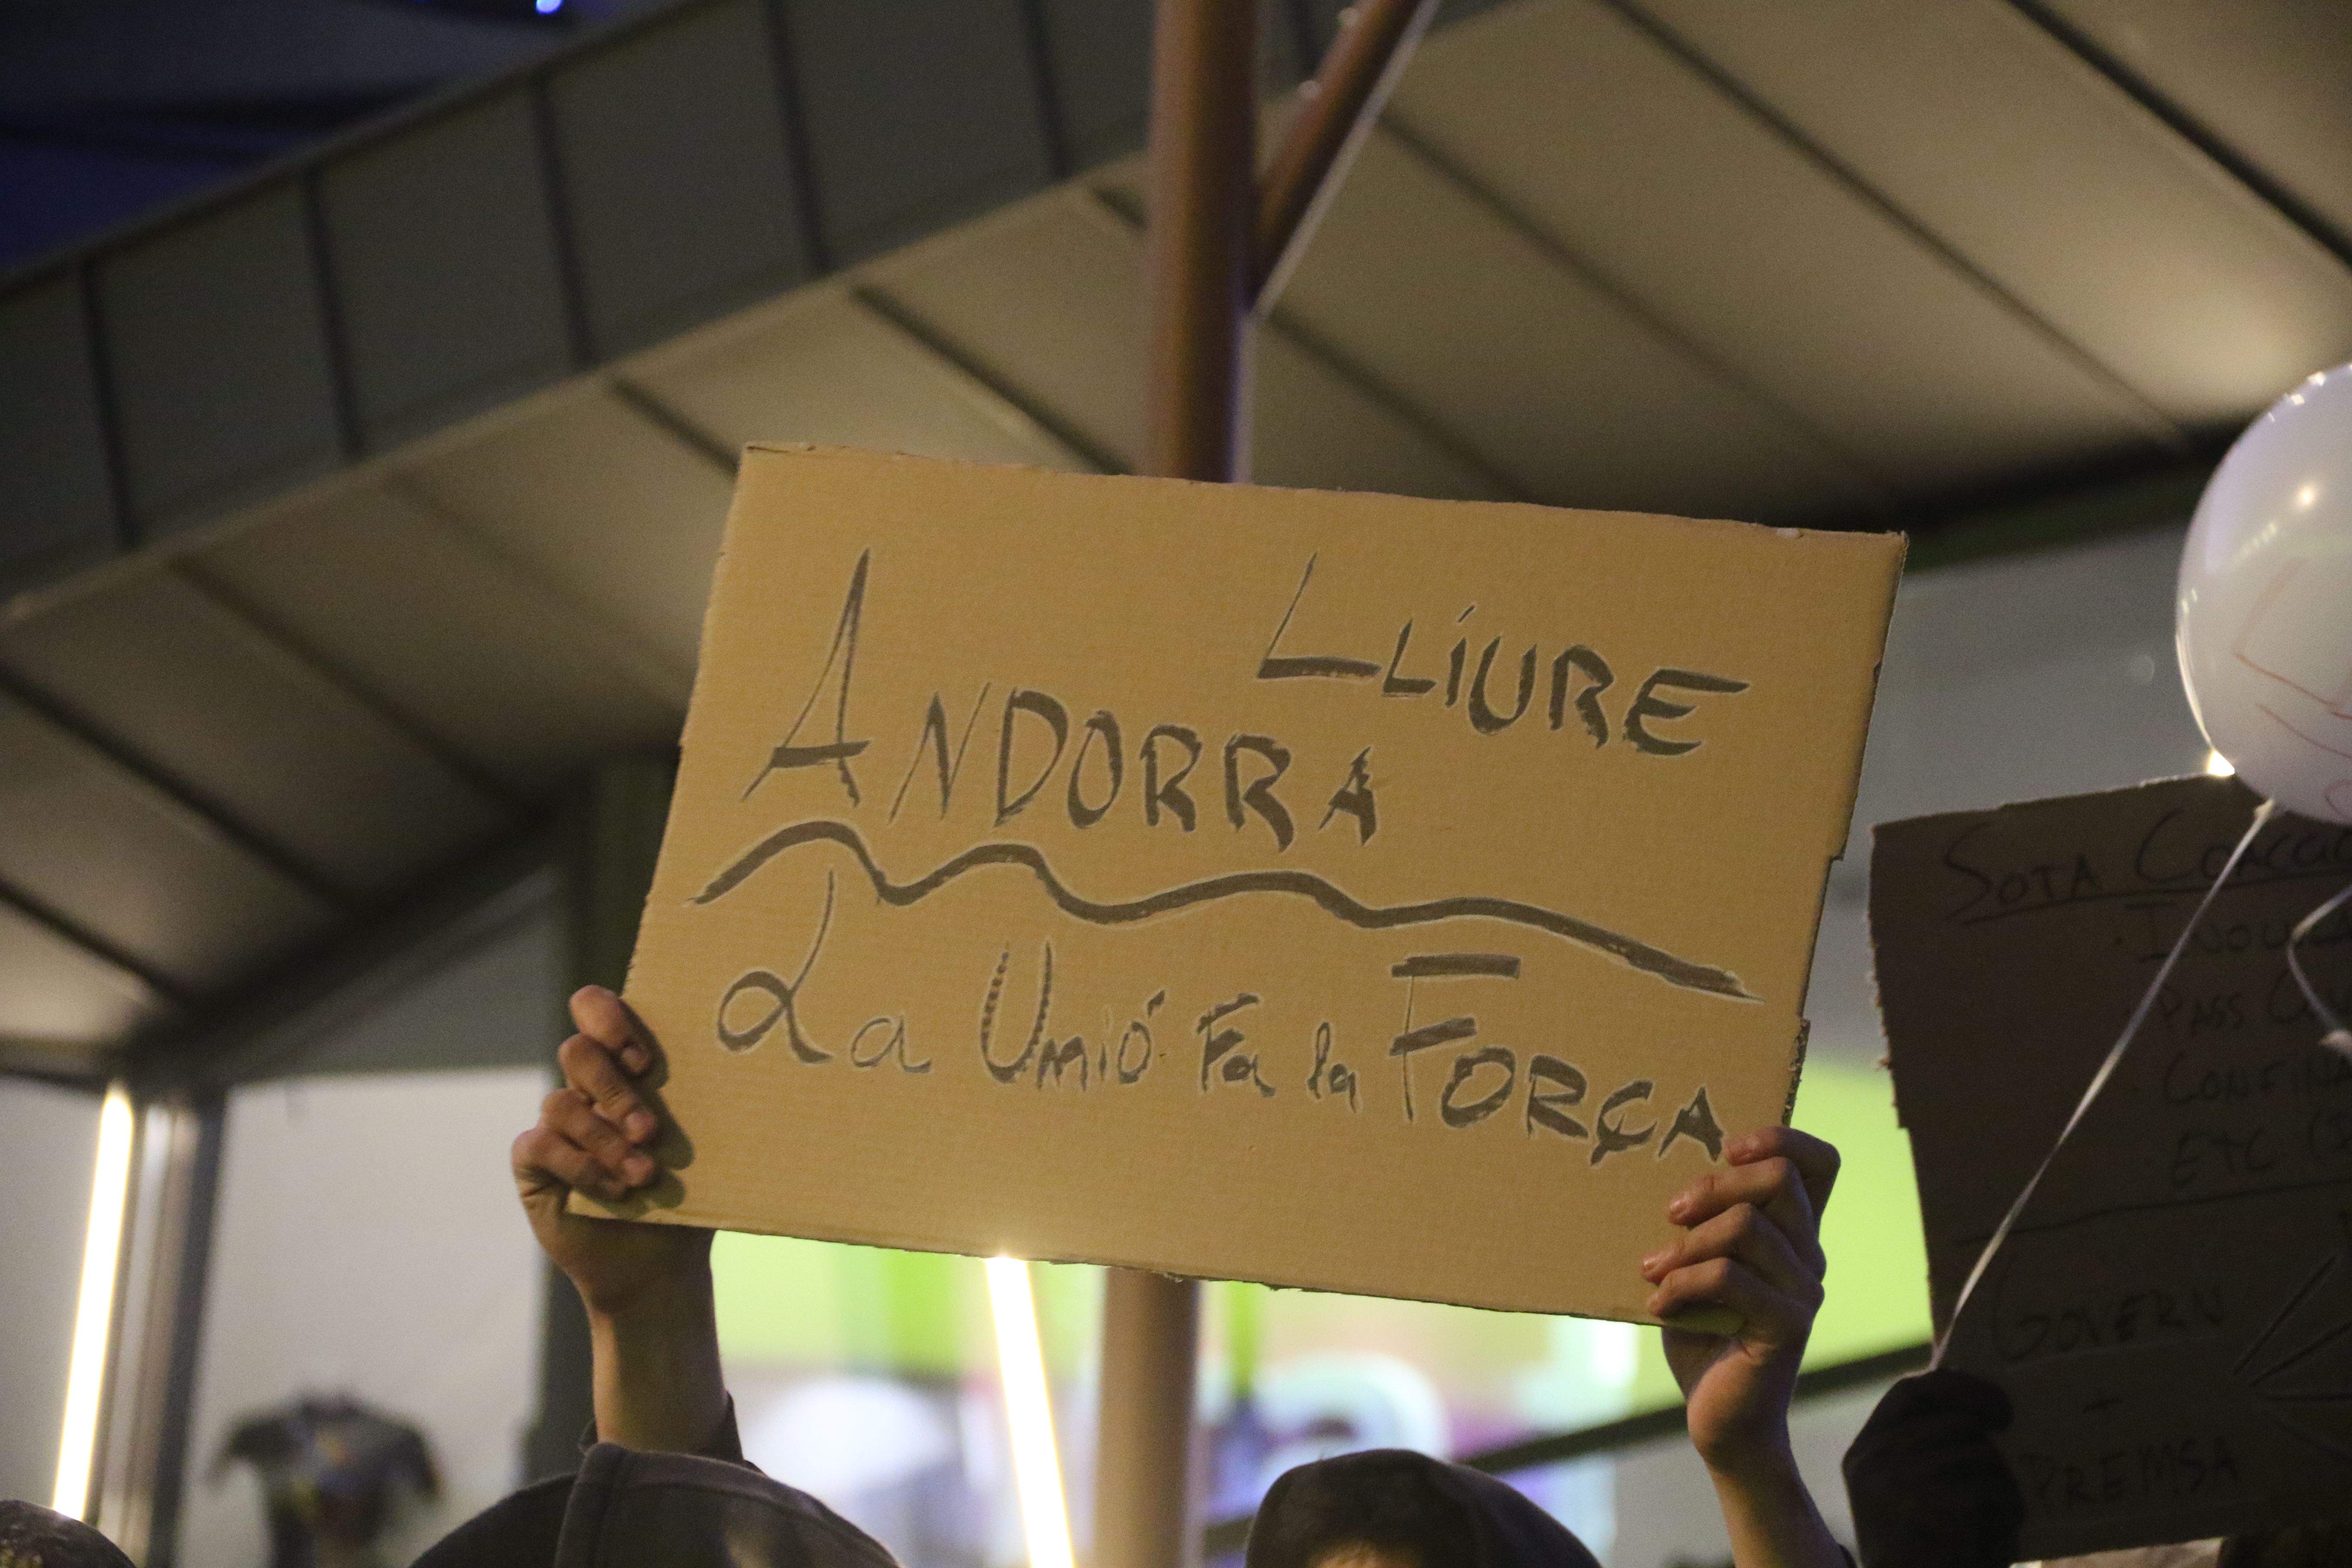 LLÍURE
ANDORRA
La Unió Fa la FORÇA
SOTA
PASS
ETC
GOVERN
+
PREMSA